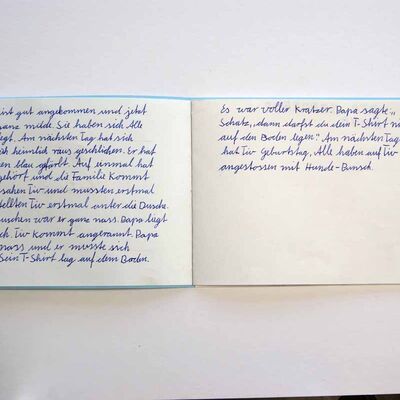 ist gut angekommen und jetzt
ganz müde. Sie haben sich Alle
legt. Am nächsten Tag hat sich
ich heimlich raus geschlichen. Er hat
en blau gefärbt. Auf einmal hat
gehört und die Familie kommt
sahen Tiv und mussten erstmal
stellten Tiv erstmal unter die Dusche.
uschen war er ganz nass. Papa liegt
ch. Tiv kommt angerannt. Papa
nass und er musste sich
Sein T-Shirt lag auf dem Boden.
Es war voller Kratzer. Papa sagte „
Schatz, dann darfst du dein T-Shirt ni
auf den Boden legen." Am nächsten Tag
hat Tiv Geburtstag. Alle haben auf Tiv
angestossen mit Hunde-Punsch.